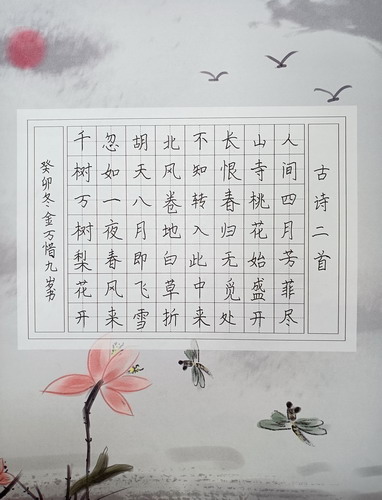 古诗二首
人间四月芳菲尽
山寺桃花始盛开
长恨春归无觅处
不知转入此中来
北风卷地白草折
胡天八月即飞雪
忽如一夜春风来
千树万树梨花开
癸卯冬金万惜九岁书